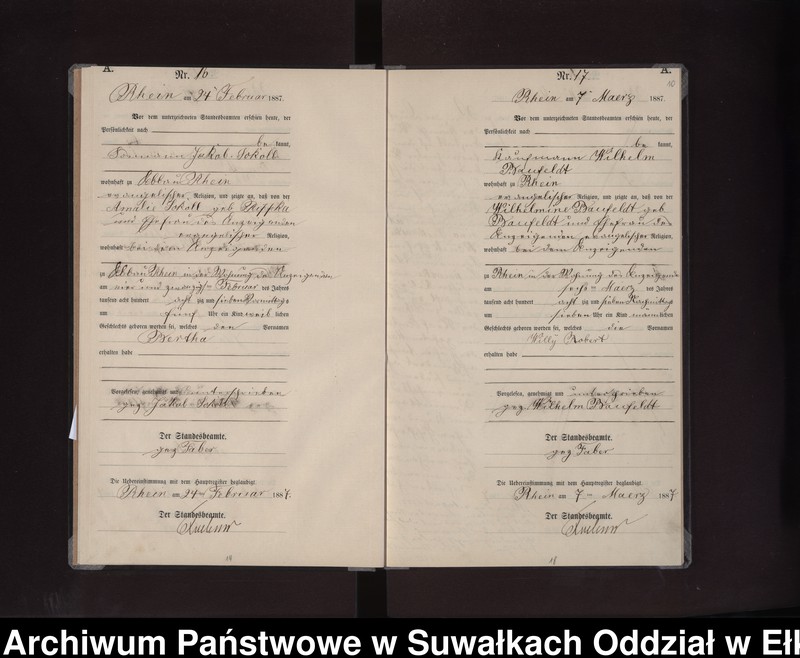 A.
Nr. 16
Rhein am 24 Februar 1887.
Vor dem unterzeichneten Standesbeamten erschien heute, der
Persönlichkeit nach
be kannt,
Jakob Sokoll
wohnhaft zu Abbau Rhein
evangelischer Religion, und zeigte an, daß von der
Amalie Sokoll geb
und Ehefrau des Anzeigenden
evangelischer Religion,
wohnhaft bei dem Anzeigenden
zu Abbau Rhein in der Wohnung des Anzeigenden
am vier und zwanzigsten Februar des Jahres
tausend acht hundert acht zig und sieben Vormittags
um fünf Uhr ein Kind weib lichen
Geschlechts geboren worden sei, welches den Vornamen
Bertha
erhalten habe
Vorgelesen, genehmigt und unterschrieben
gez Jakob Sokoll
Der Standesbeamte.
gez Faber
Die Uebereinstimmung mit dem Hauptregister beglaubigt
Rhein am 24ten Februar 1887.
Der Standesbeamte.
18
Nr. 17
A.
10
Rhein am 7ten Maerz 1887.
Vor dem unterzeichneten Standesbeamten erschien heute, der
Persönlichkeit nach
be kannt,
Kaufmann Wilhelm
Baufeldt
wohnhaft zu Rhein
evangelischer Religion, und zeigte an, daß von der
Wilhelmine Baufeldt geb
Baufeldt und Ehefrau des
Anzeigenden evangelischer Religion,
wohnhaft bei dem Anzeigenden
zu Rhein in der Wohnung des Anzeigenden
am sechsten Maerz des Jahres
tausend acht hundert acht zig und sieben Nachmittags
um sieben Uhr ein Kind männ lichen
Geschlechts geboren worden sei, welches die Vornamen
Willy Robert
erhalten habe
Vorgelesen, genehmigt und unterschrieben
gez Wilhelm Baufeldt
Der Standesbeamte.
gez Faber
Die Uebereinstimmung mit dem Hauptregister beglaubigt
Rhein am 7ten Maerz 1887
Der Standesbeamte.
Archiwum Państwowe w Suwałkach Oddział w Ełk